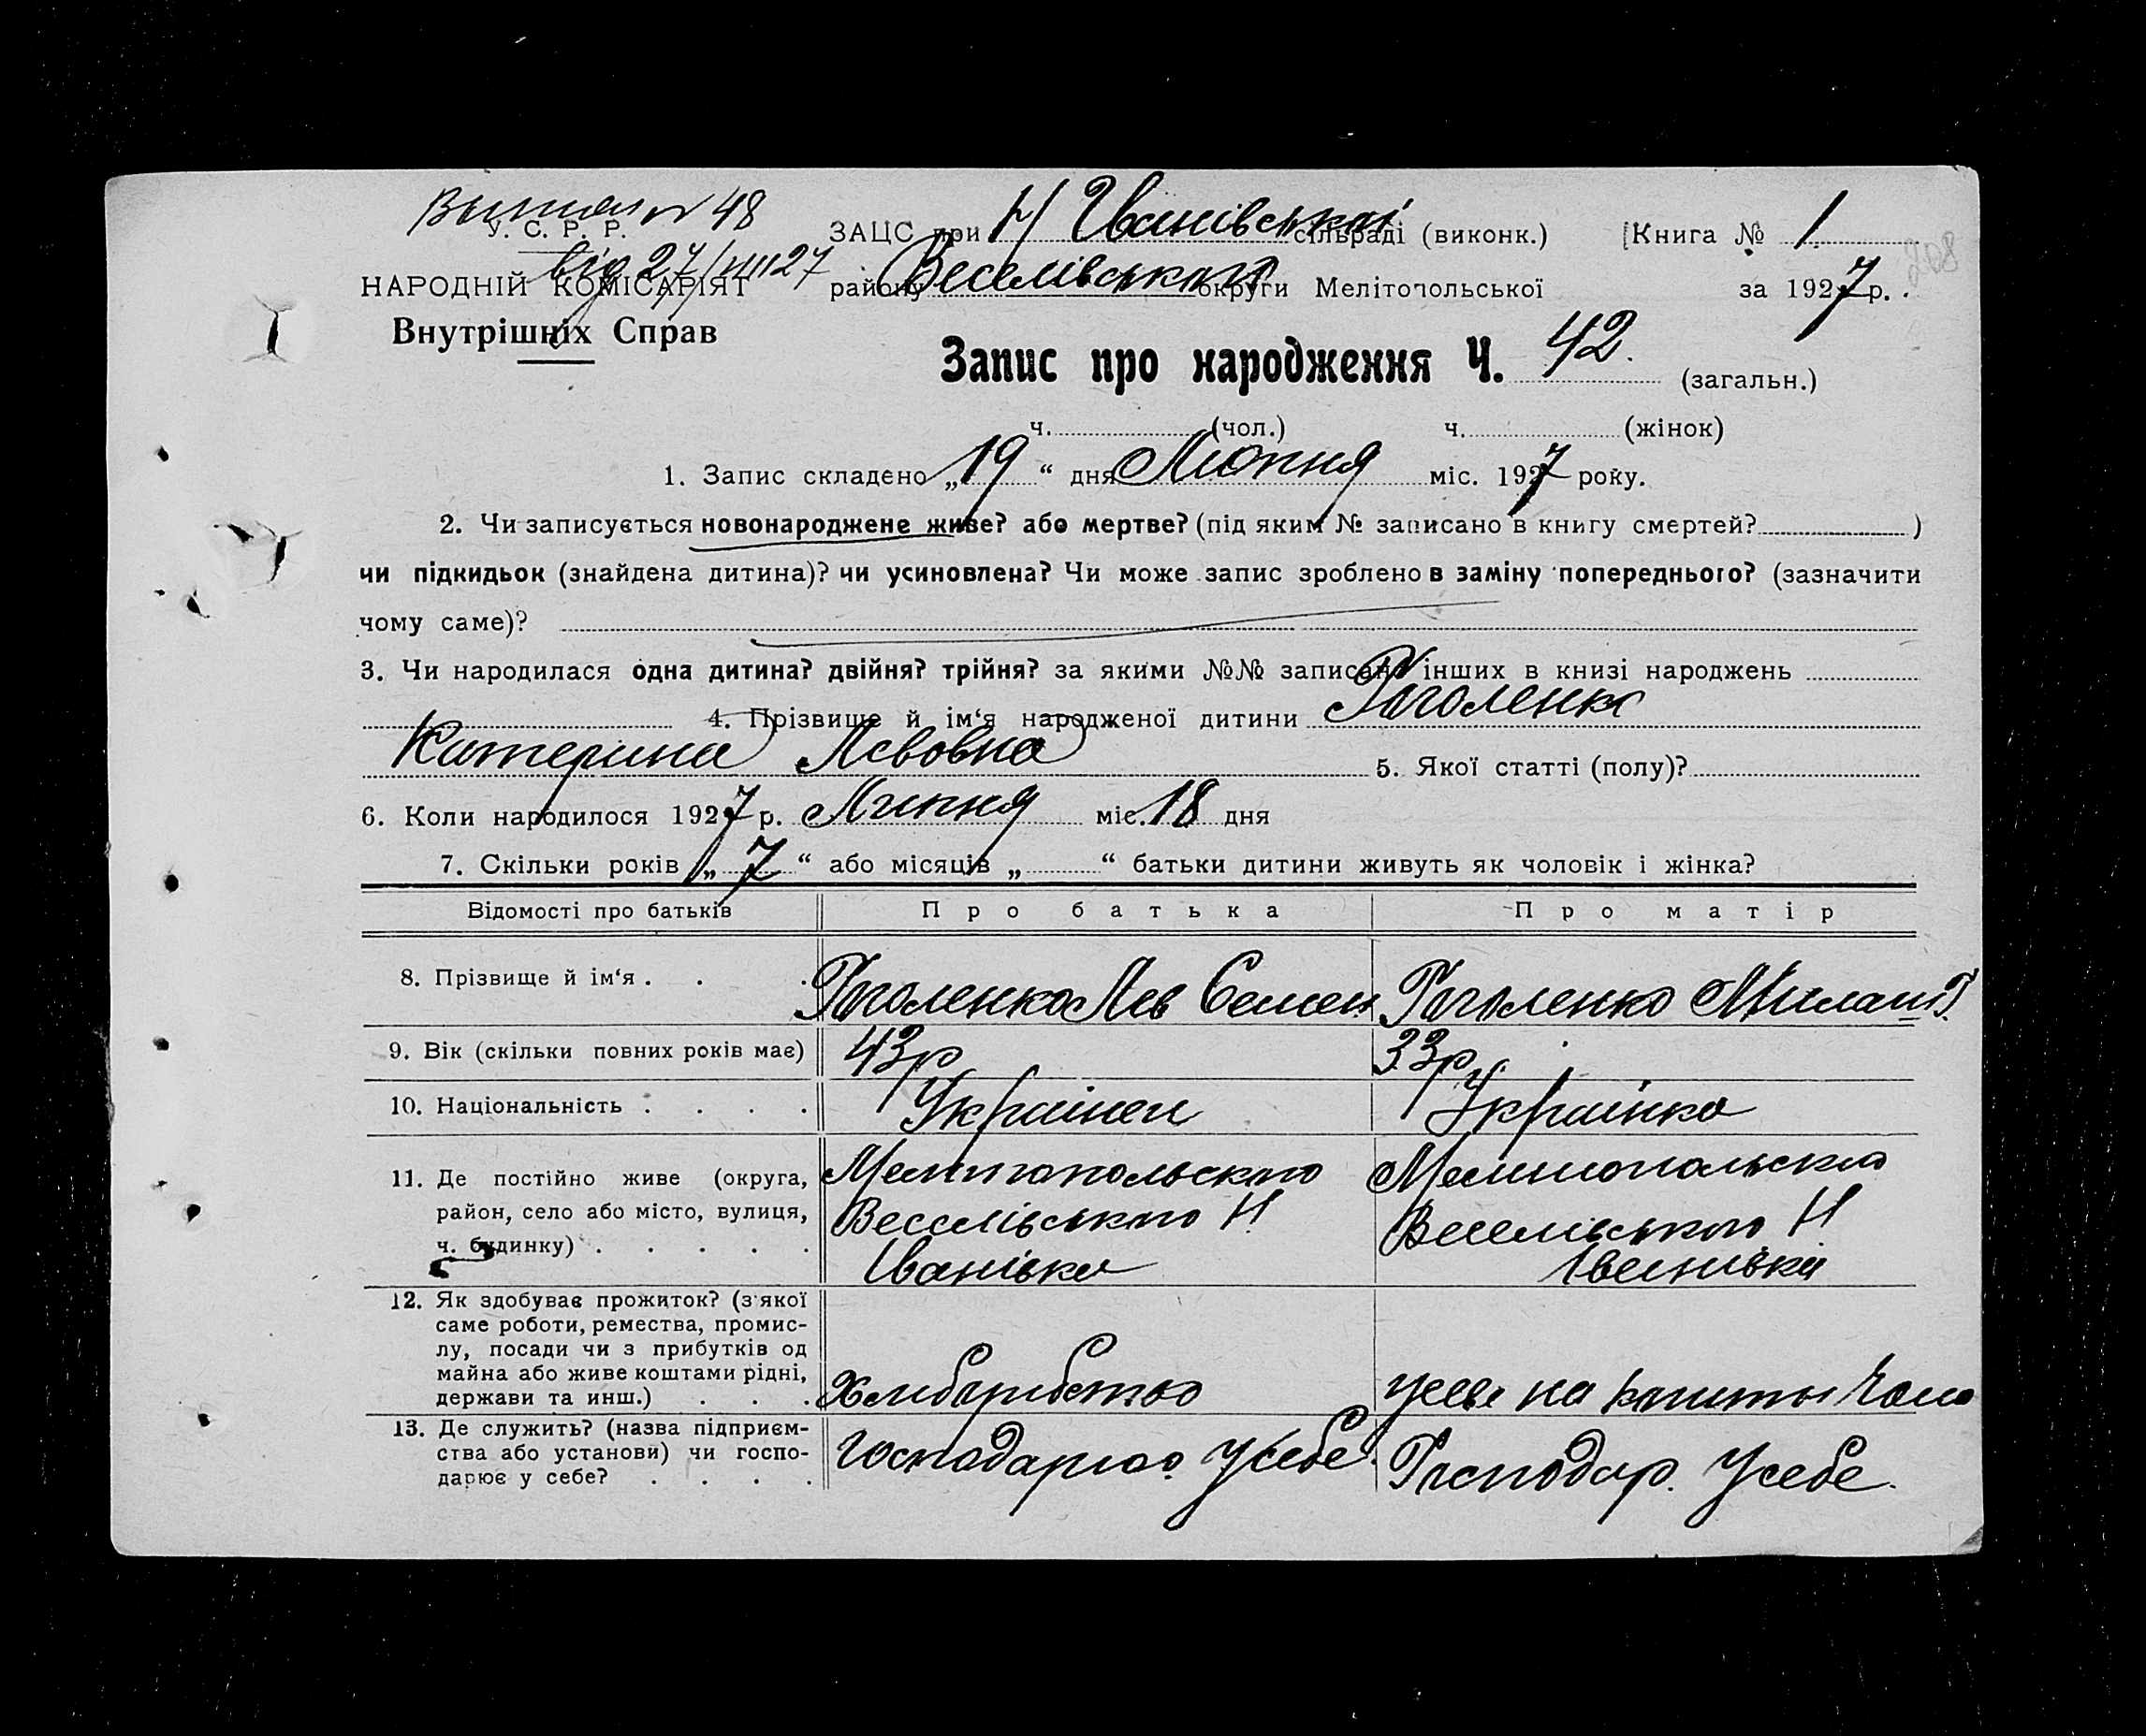 48
У. С. Р. Р.
від 27/VIII 27
НАРОДНІЙ КОМІСАРІЯТ
Внутрішніх Справ
ЗАЦС при Н Іванівській сільраді (виконк.) Книга № 1
району Веселівського округи Мелітопольської за 1927 р.
208
Запис про народження Ч. 42. (загальн.)
ч. (чол.) ч. (жінок)
1. Запис складено „19“ дня Липня міс. 1927 року.
2. Чи записується новонароджене живе? або мертве? (під яким № записано в книгу смертей? )
чи підкидьок (знайдена дитина)? чи усиновлена? Чи може запис зроблено в заміну попереднього? (зазначити
чому саме)?
3. Чи народилася одна дитина? двійня? трійня? за якими №№ записано інших в книзі народжень
4. Прізвище й ім‘я народженої дитини Гоголенко
Катерина Львовна 5. Якої статті (полу)?
6. Коли народилося 1927 р. Липня міс. 18 дня
7. Скільки років „7“ або місяців „ “ батьки дитини живуть як чоловік і жінка?
Відомості про батьків Про батька Про матір
8. Прізвище й ім‘я . . . Гоголенко Лев Семен Гоголенко
9. Вік (скільки повних років має) 43р 33р.
10. Національність . . . . Українец Українка
11. Де постійно живе (округа, Мелитопольского Мелитопольского
район, село або місто, вулиця, Веселівського Н Веселівського Н
ч. будинку) . . . . . Іванівка Іванівка
12. Як здобуває прожиток? (з якої
саме роботи, ремества, промис-
лу, посади чи з прибутків од
майна або живе коштами рідні,
держави та инш.) . . . Хліборобство на кошты
13. Де служить? (назва підприєм-
ства або установи) чи госпо- Господарює Усебе Господар. Усебе.
дарює у себе? . . . .